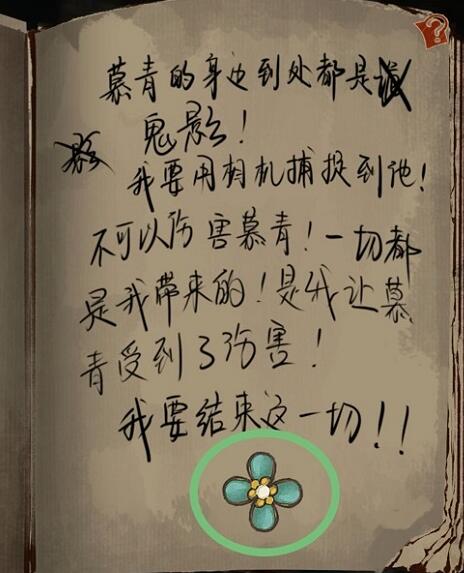 慕青的身边到处都是
鬼影!
我要用相机捕捉到他!
不可以伤害慕青!一切都
是我带来的!是我让慕
青受到了伤害!
我要结束这一切!!
?